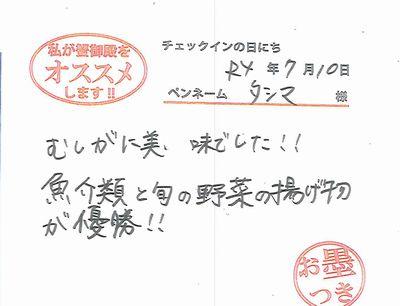 私が碧御殿を
オススメ
します!!
チェックインの日にち
R4 年 7 月 10 日
ペンネーム タシマ 様
むしがに美味でした!!
魚介類と旬の野菜の揚げ物
が優勝!!
お墨
つき